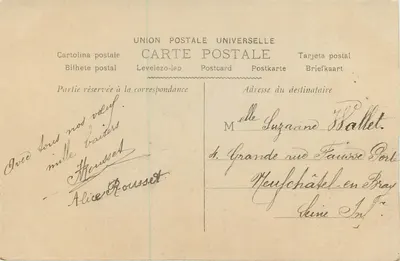 UNION POSTALE UNIVERSELLE
CARTE POSTALE
Cartolina postale
Tarjeta postal
Bilhete postal
Levelezö-lap
Postcard
Postkarte
Briefkaart
Partie réservée à la correspondance
Avec tous nos vœux
mille baisers
Rousset
Alice Rousset
Adresse du destinataire
Melle Suzanne Wallet
4. Grande rue Fausse Porte
Neufchâtel-en-Bray
Seine Infre